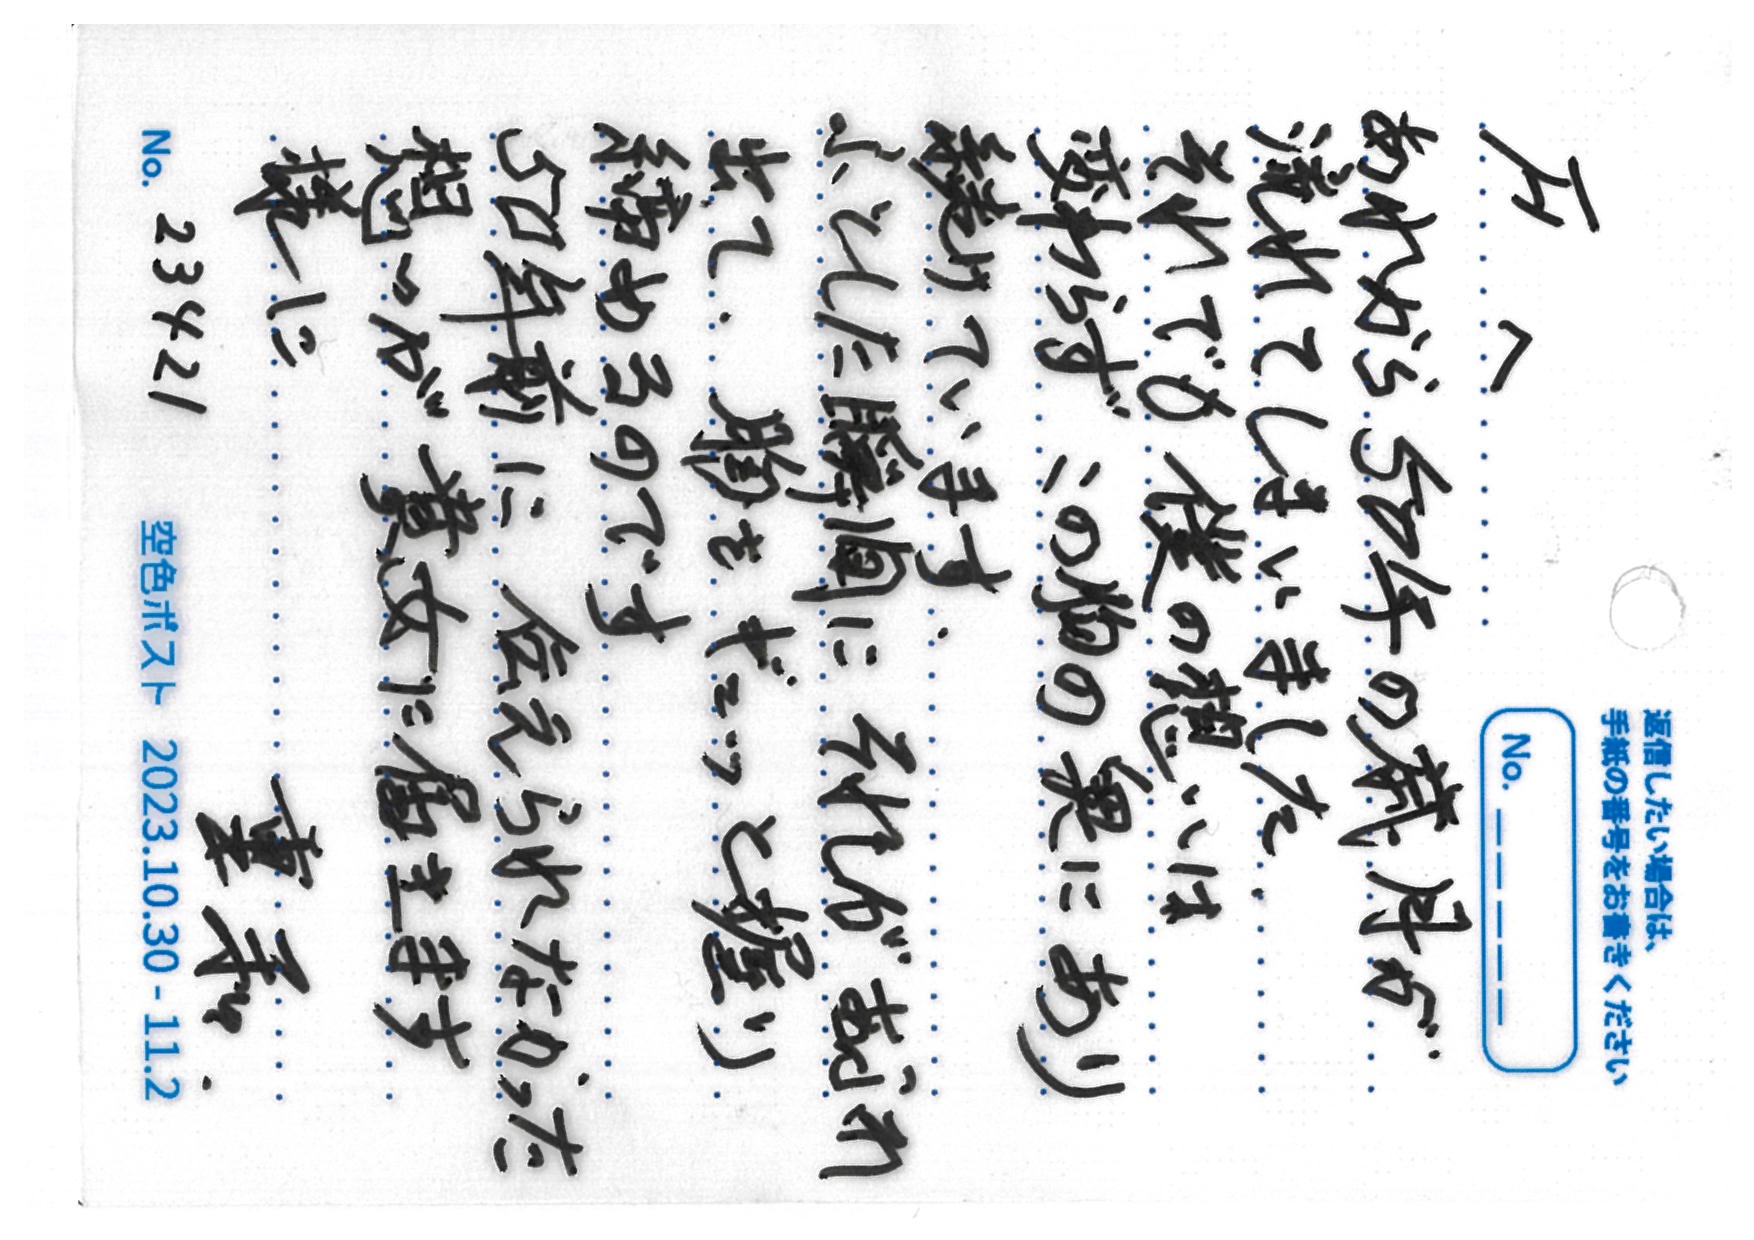 返信したい場合は、
手紙の番号をお書きください
No. _ _ _ _ _
へ
あれから50年の歳月が
流れてしまいました.
それでも僕の想いは
変わらずこの胸の奥にあり
続けています.
ふとした瞬間にそれがあふれ
出て.胸をギュッと握り
締めるのです
50年前に伝えられなかった
想いが貴女に届きます
様に
重和.
No. 23421
空色ポスト 2023.10.30 - 11.2